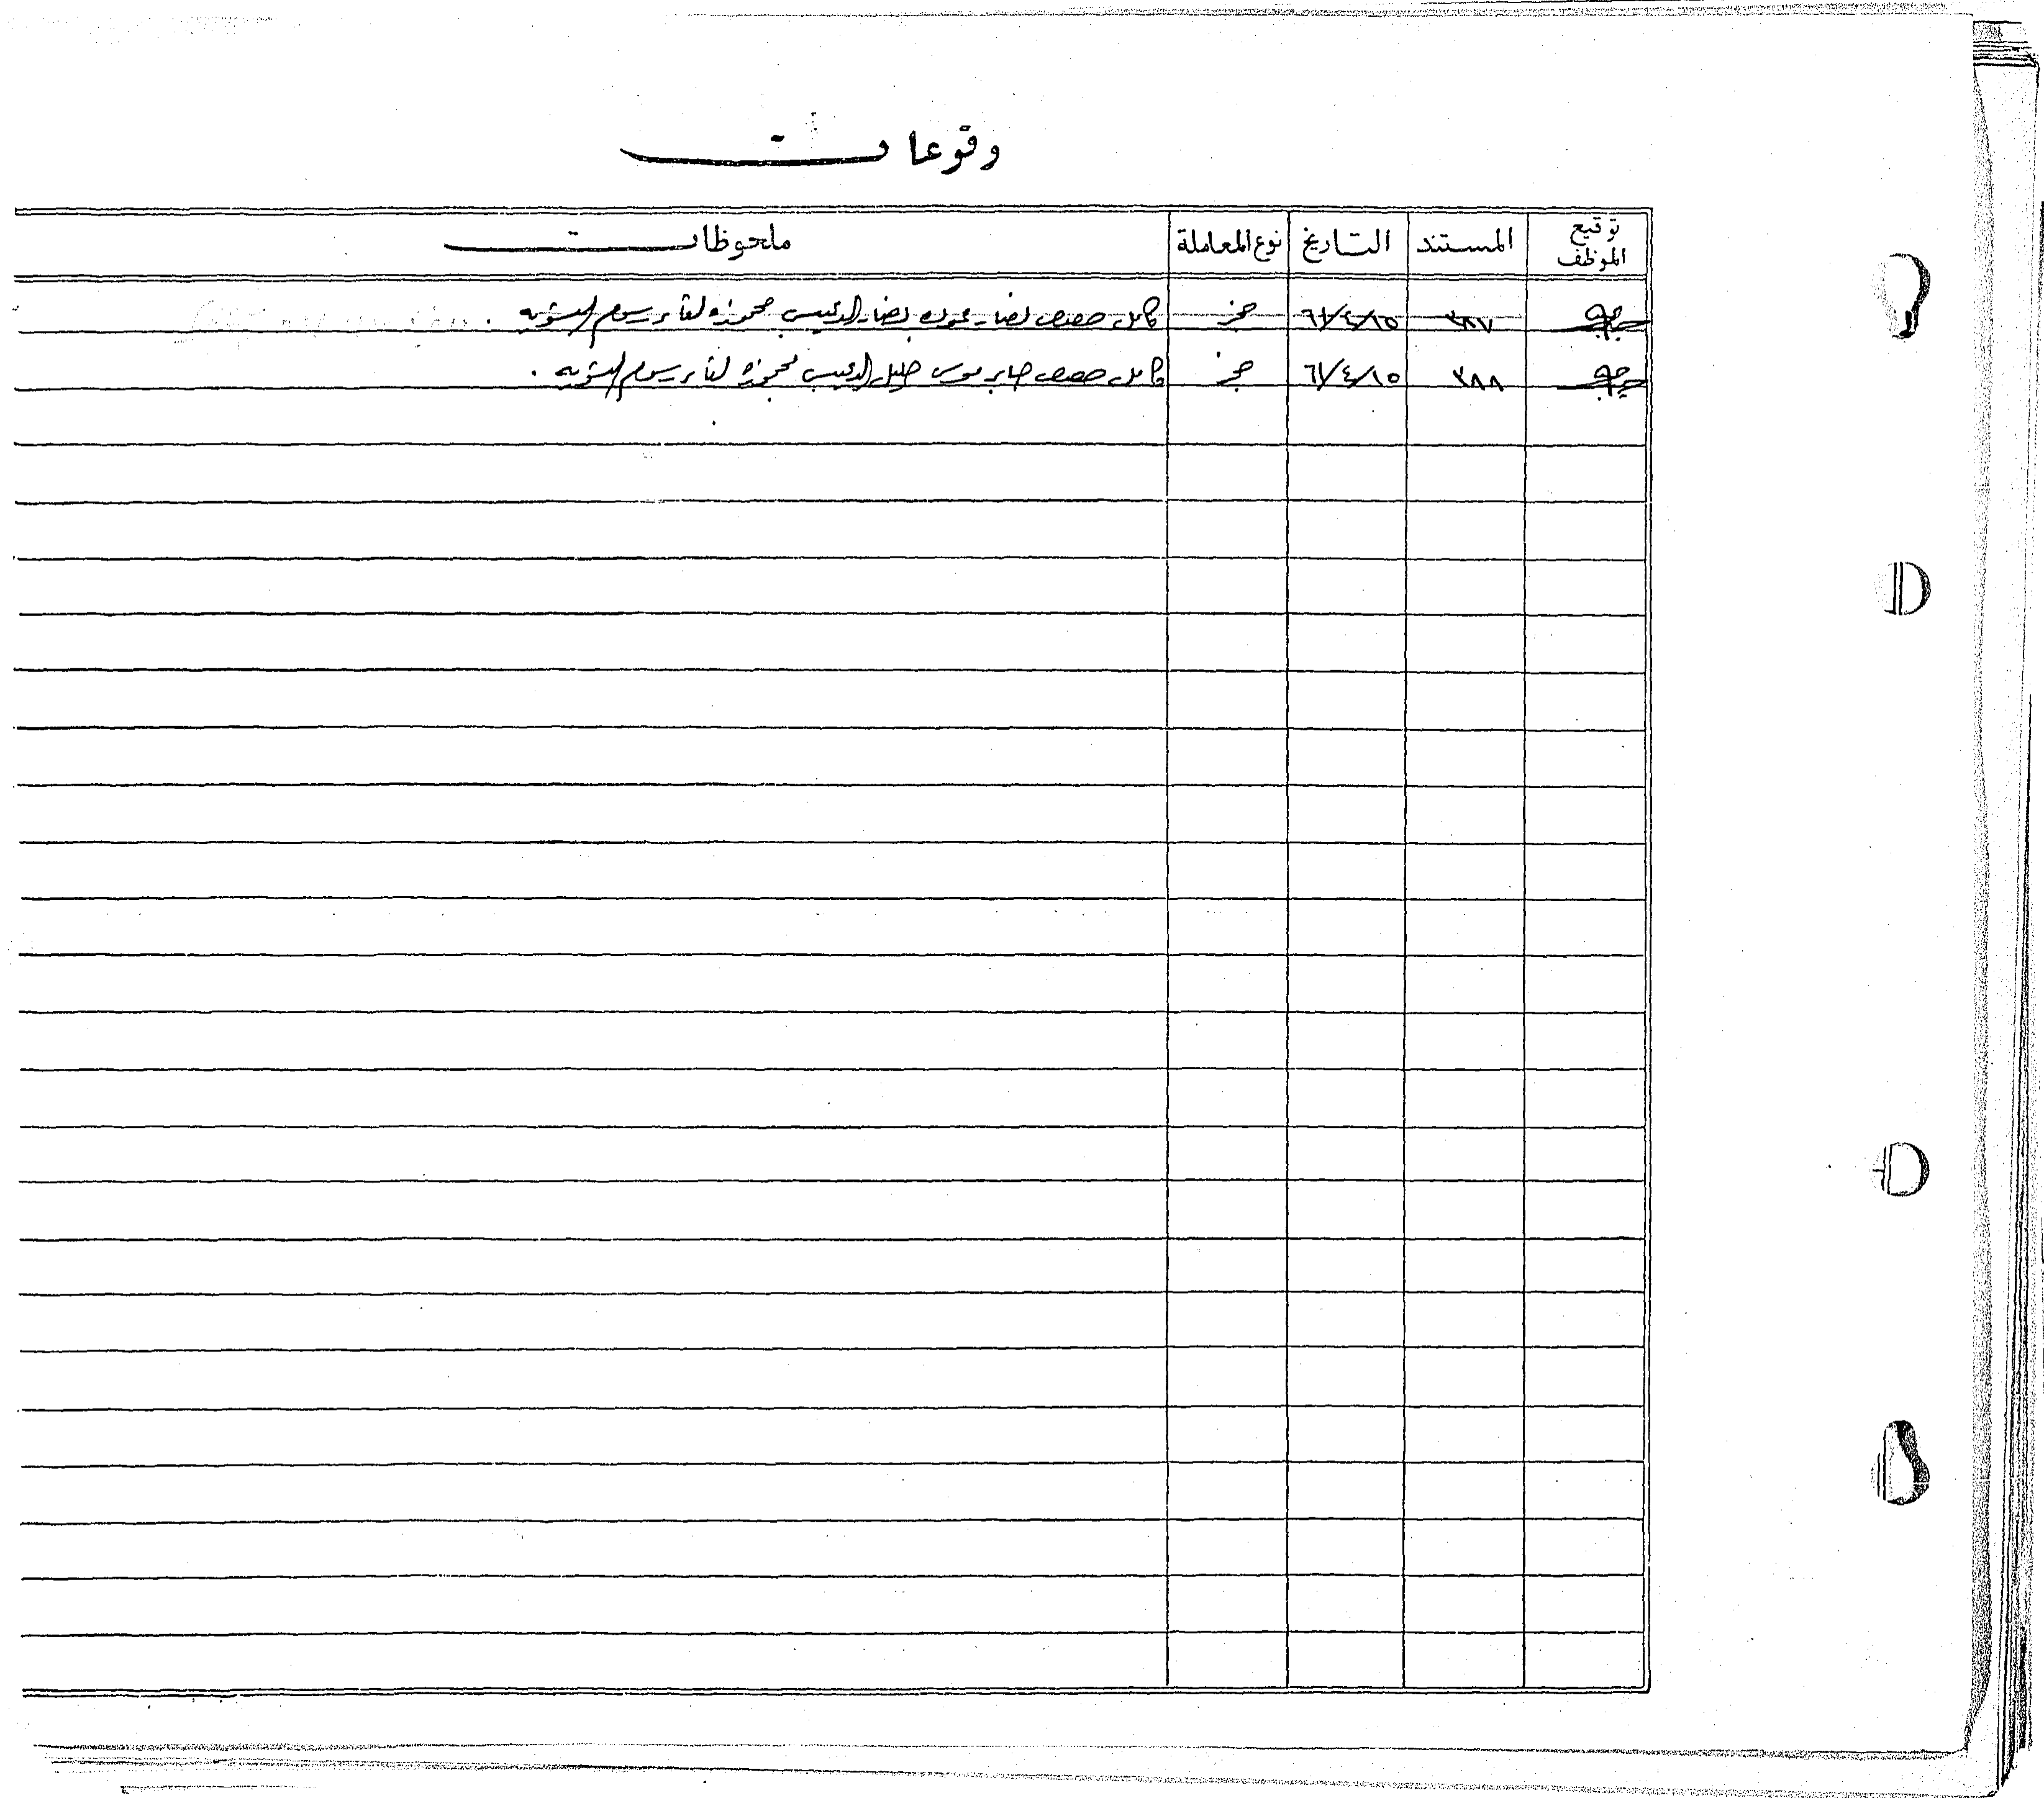 وقوعات
توقيع الموظف المستند التاريخ نوع المعاملة ملحوظات
٣٨٧ ٦١/٤/١٥ حجز كامل حصص نصار عوده نصار الدعيبس محجوزه لقاء رسوم التسويه .
٣٨٨ ٦١/٤/١٥ حجز كامل حصص صابر موسى خليل الدعيبس محجوزه لقاء رسوم التسويه .